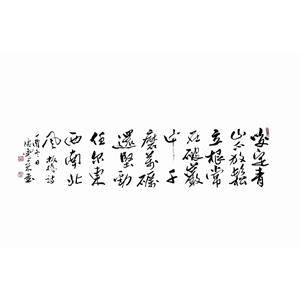 咬定青
山不放鬆
立根常
在破巖
中千
磨萬礪
還堅勁
任爾東
西南北
風板橋詩